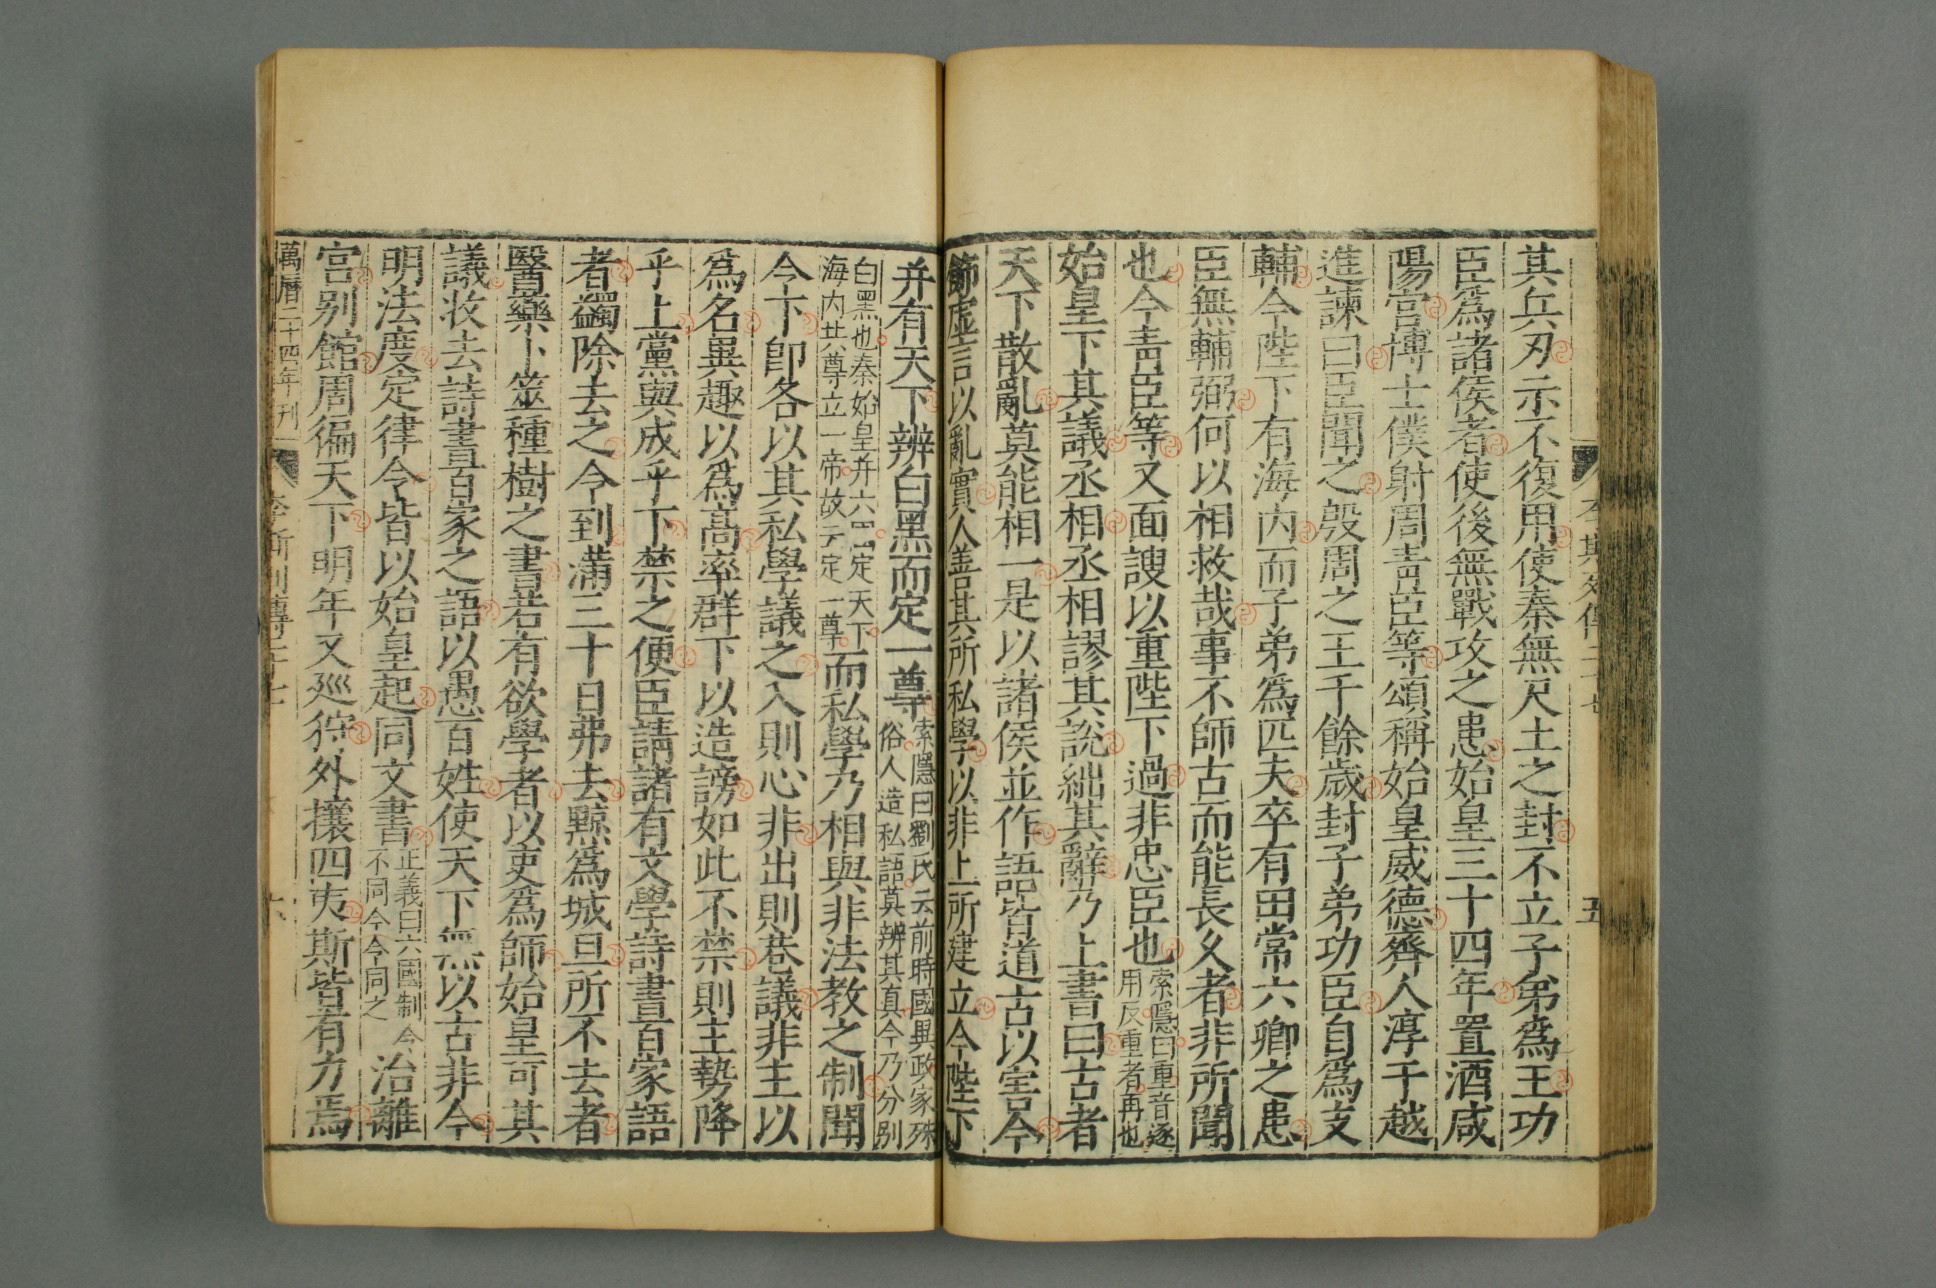 李斯列傳二十七
五
其兵刃示不復用使秦無尺土之封不立子弟爲王功
臣爲諸侯者使後無戰攻之患始皇三十四年置酒咸
陽宮博士僕射周靑臣等頌稱始皇威德齊人淳于越
進諫曰臣聞之殷周之王千餘歲封子弟功臣自爲支
輔今陛下有海內而子弟爲匹夫卒有田常六卿之患
臣無輔弼何以相救哉事不師古而能長久者非所聞
也今靑臣等又面諛以重陛下過非忠臣也
索隱曰重音逐
用反重者再也
始皇下其議丞相丞相謬其說絀其辭乃上書曰古者
天下散亂莫能相一是以諸侯並作語皆道古以害今
飾虛言以亂實人善其所私學以非上所建立今陛下
并有天下辨白黑而定一尊
索隱曰劉氏云前時國異政家殊
俗人造私語莫辨其真今乃分別
白黑也秦始皇并六國定天下
海內共尊立一帝故云定一尊
而私學乃相與非法教之制聞
今下卽各以其私學議之入則心非出則巷議非主以
爲名異趣以爲高率群下以造謗如此不禁則主勢降
乎上黨與成乎下禁之便臣請諸有文學詩書百家語
者蠲除去之令到滿三十日弗去黥爲城旦所不去者
醫藥卜筮種樹之書若有欲學者以吏爲師始皇可其
議收去詩書百家之語以愚百姓使天下無以古非今
明法度定律令皆以始皇起同文書
正義曰六國制令
不同今令同之
治離
宮別館周徧天下明年又巡狩外攘四夷斯皆有力焉
萬曆二十四年刊
李斯列傳二十七
六